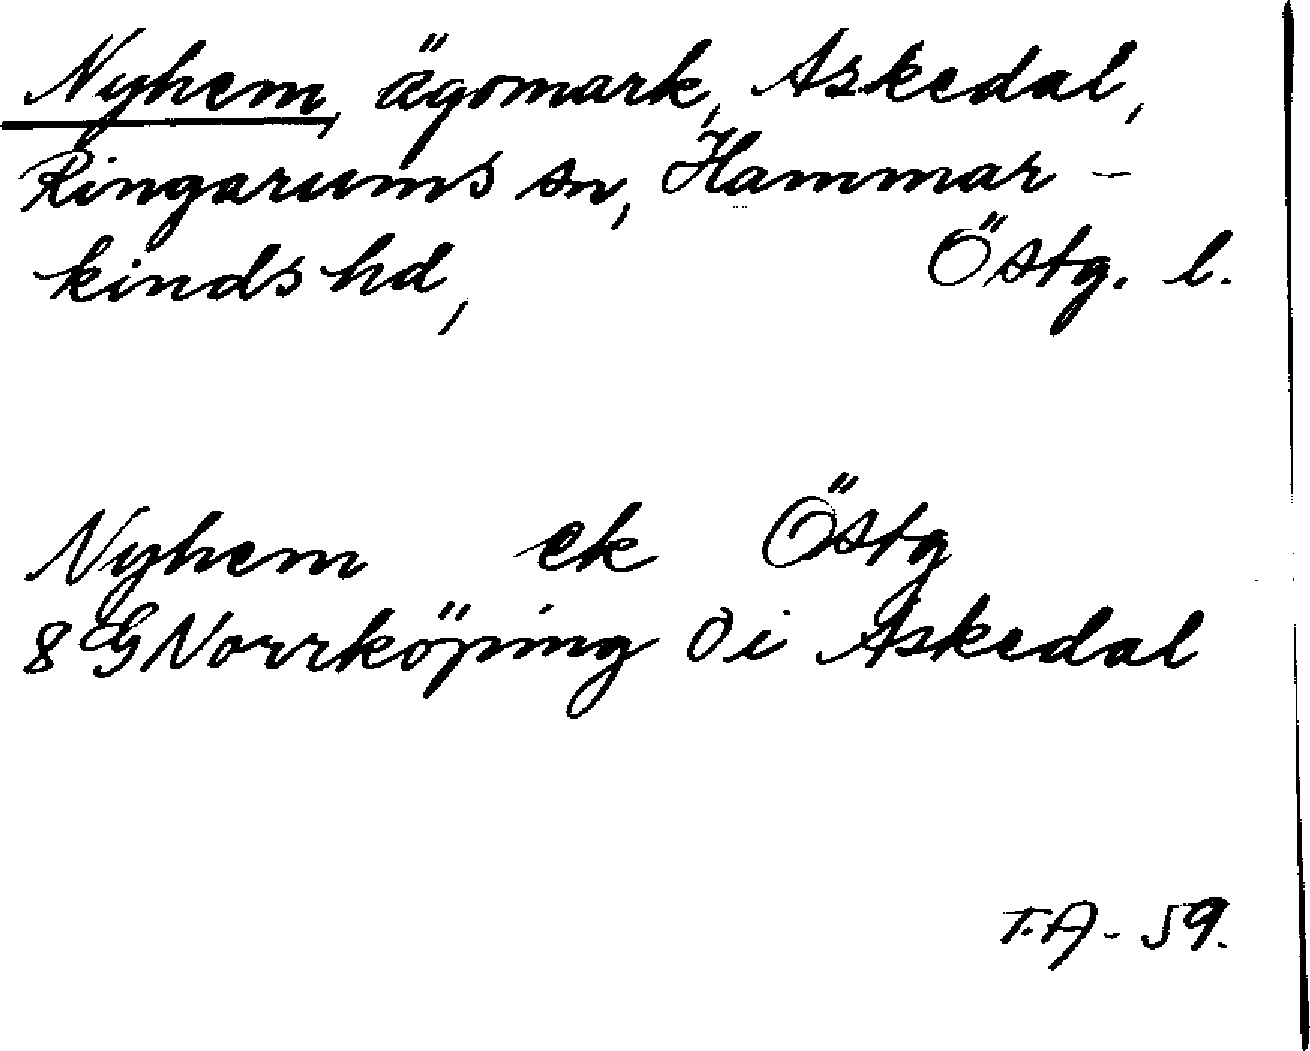 Nyhem, ägomark, Askedal,
Ringarums sn, Hammar-
kinds hd, Östg. l.
Nyhem ek Östg
8 G Norrköping 0 i Askedal
T.A-59.